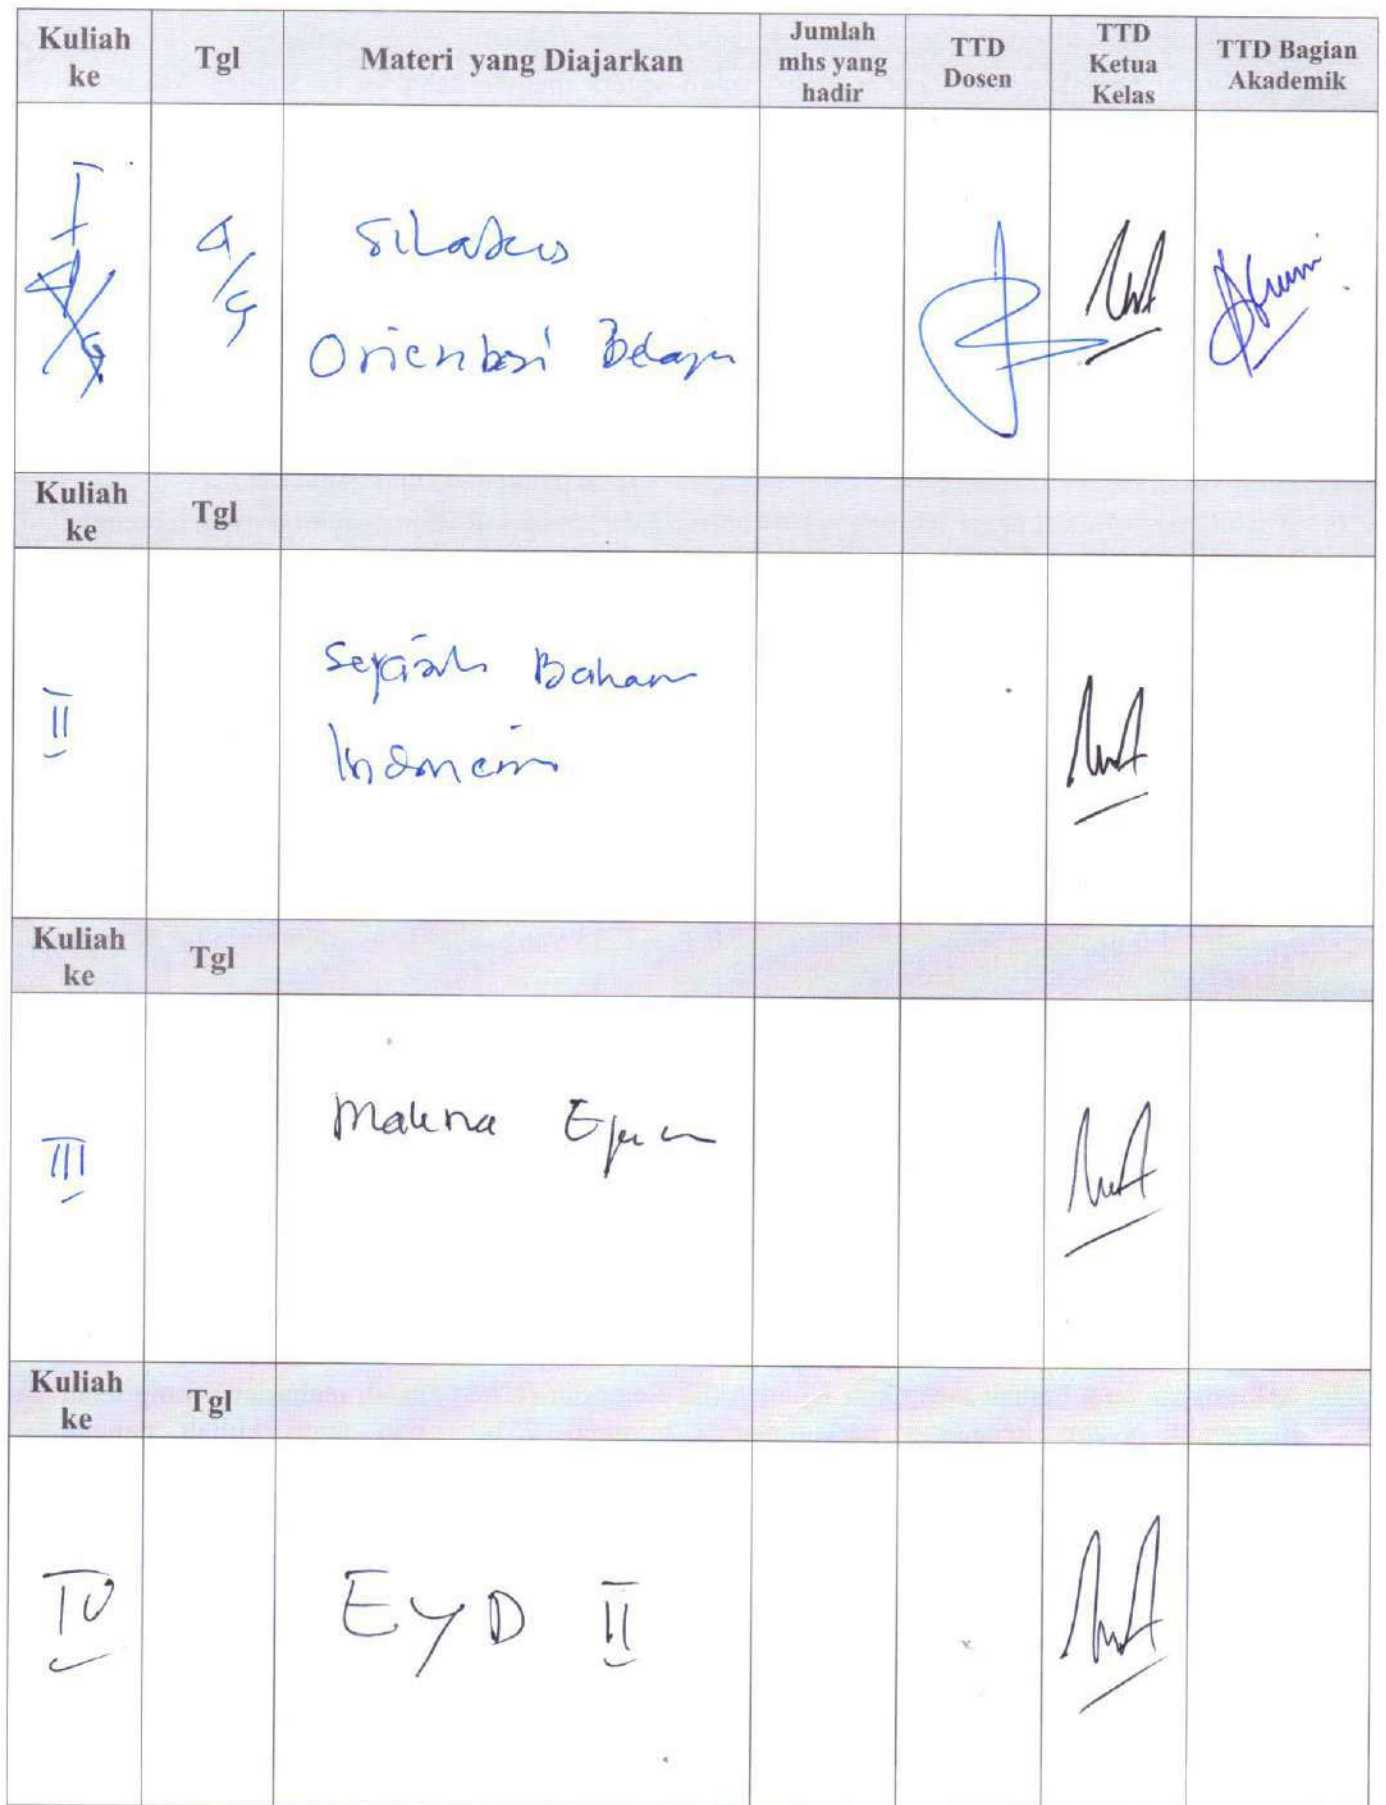 Kuliah ke
Tgl
Materi yang Diajarkan
Jumlah mhs yang hadir
TTD Dosen
TTD Ketua Kelas
TTD Bagian Akademik
I
4/9
4/9
Silabus
Orientasi Belajar
Kuliah ke
Tgl
II
Sejarah Bahasa
Indonesia
Kuliah ke
Tgl
III
Makna Ejaan
Kuliah ke
Tgl
IV
EYD II